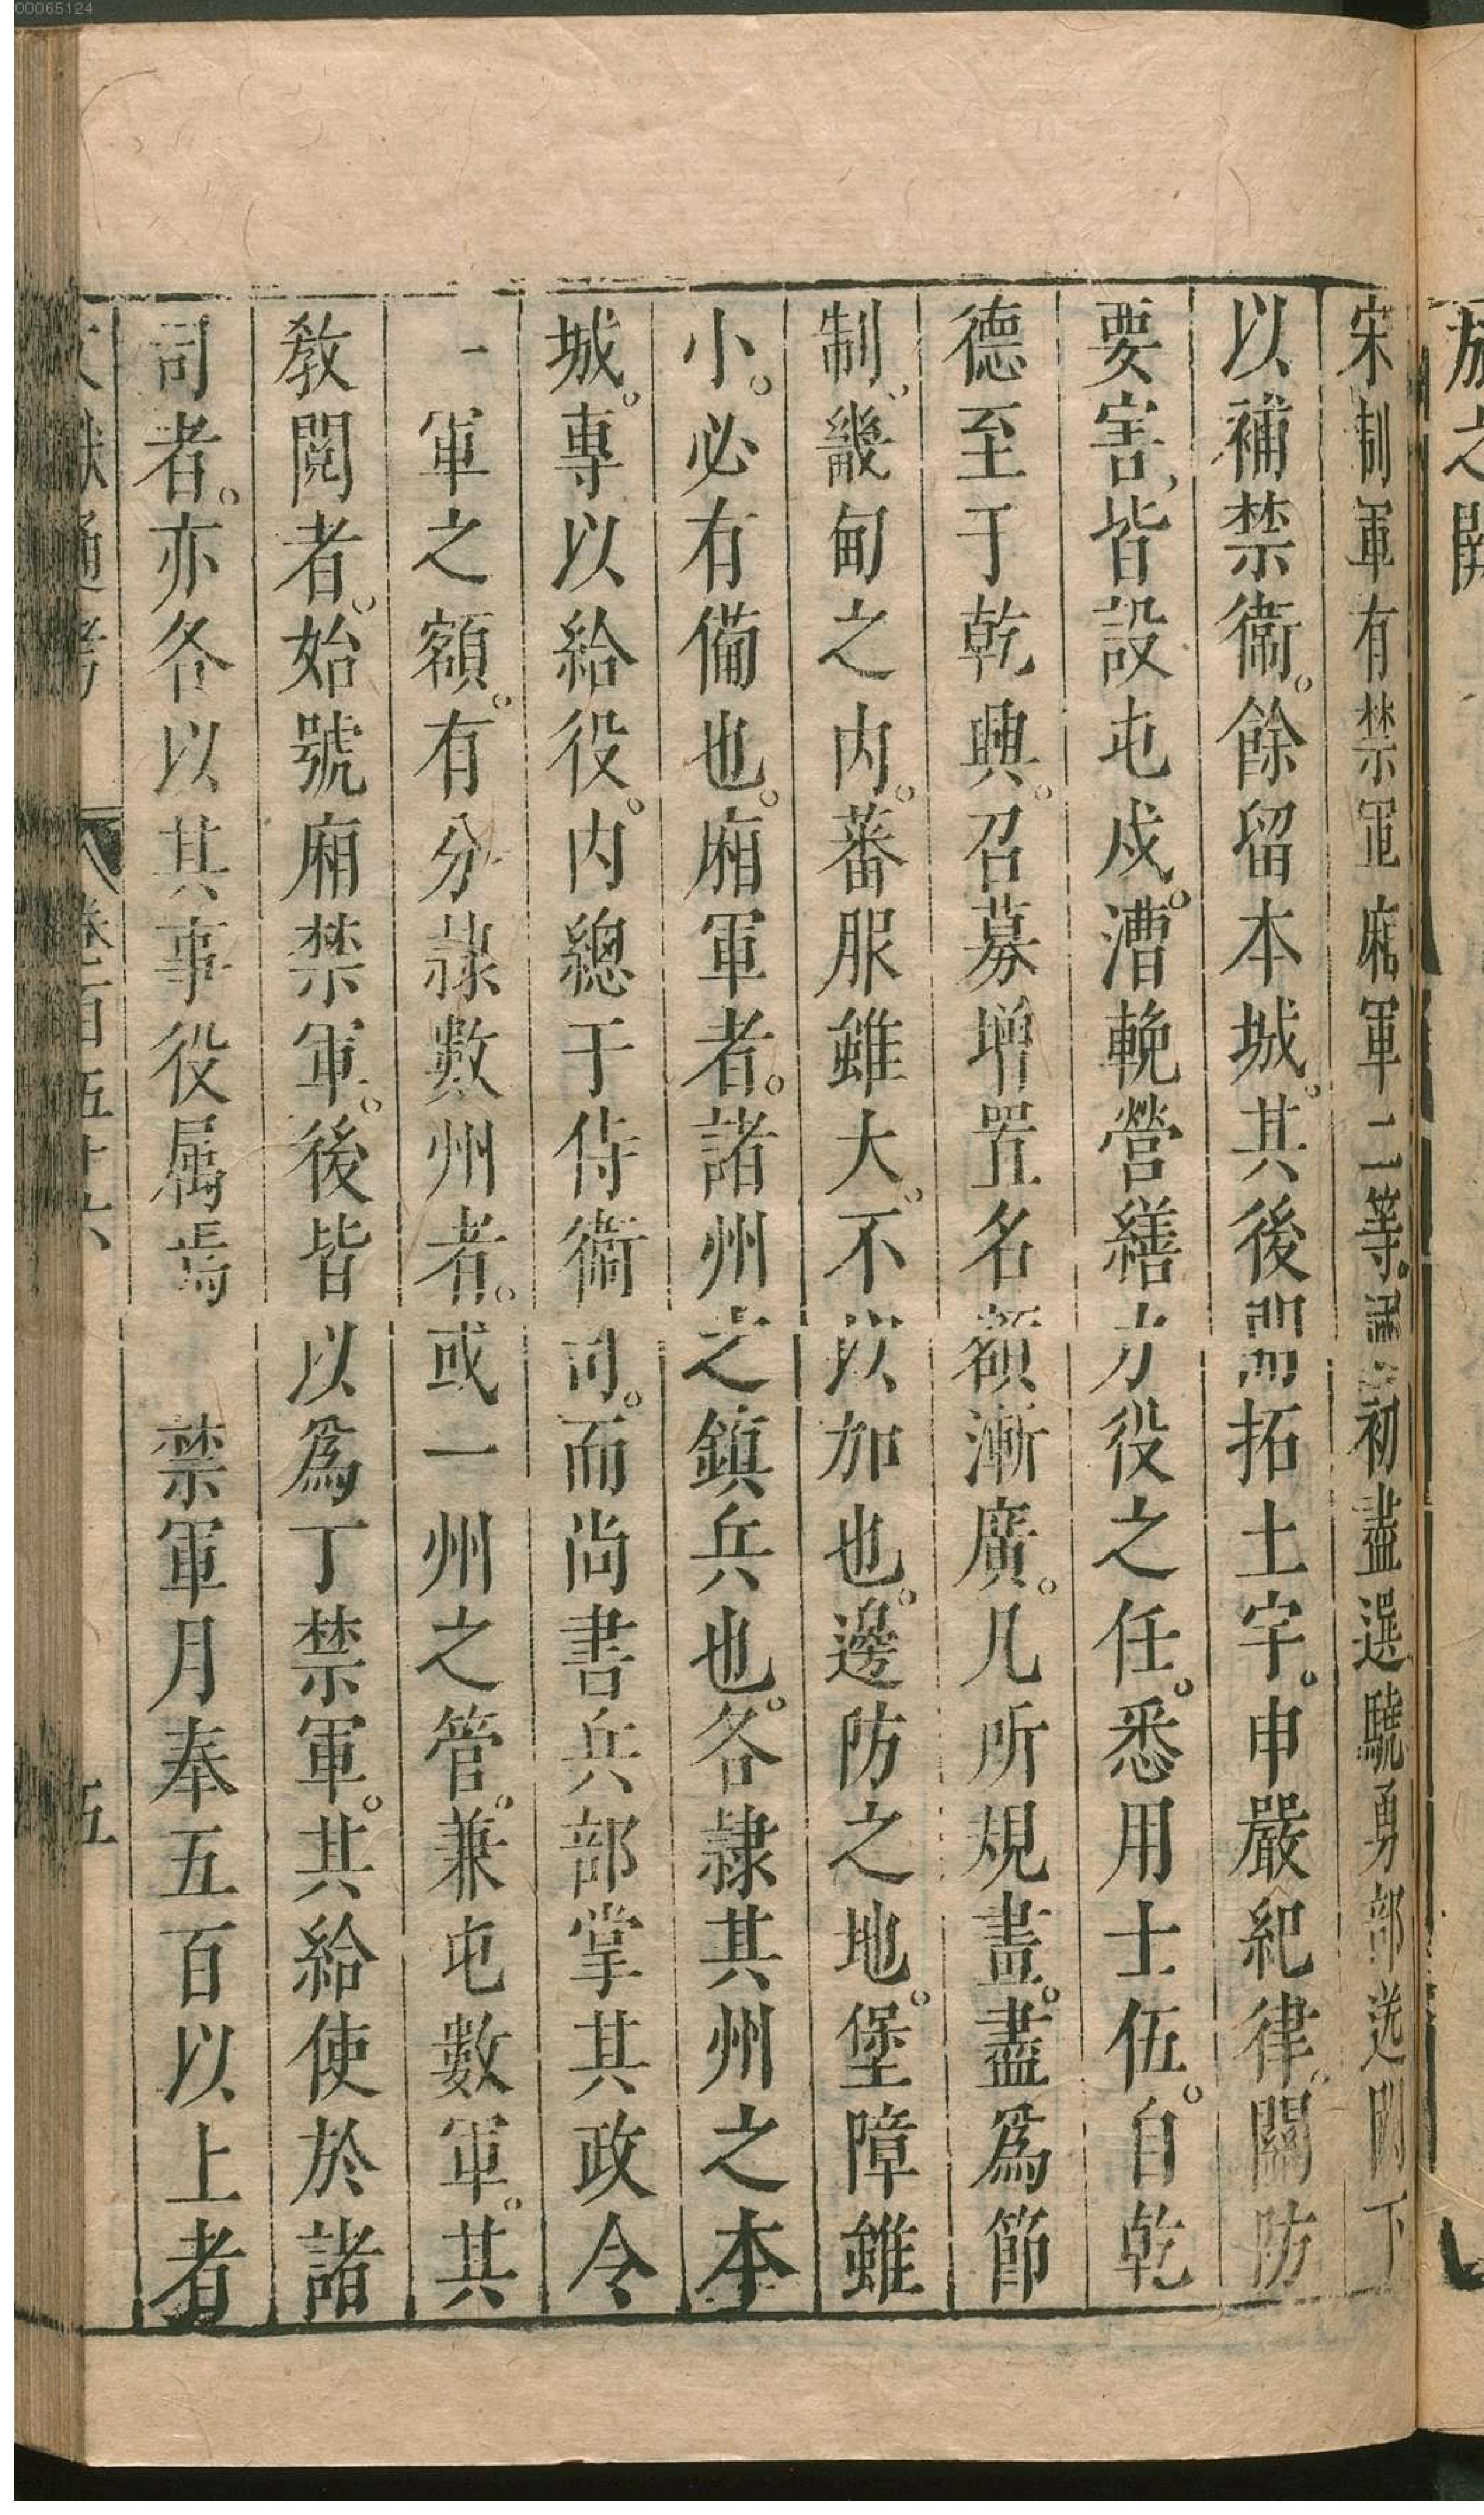 00065124
旅之閒
宋制軍有禁軍廂軍二等。國初盡選驍勇部送闕下
以補禁衞。餘留本城。其後開拓土宇。申嚴紀律。關防
要害、皆設屯戍。漕輓營繕力役之任。悉用士伍。自乾
德至于乾興。召募增置名額漸廣。凡所規畫。盡爲節
制。畿甸之内。蕃服雖大。不以加也。邊防之地。堡障雖
小。必有備也。廂軍者。諸州之鎮兵也。各隷其州之本
城。專以給役。内總于侍衞司。而尚書兵部掌其政令
一軍之額。有分隷數州者。或一州之管。兼屯數軍。其
敎閱者。始號廂禁軍。後皆以爲丁禁軍。其給使於諸
司者。亦各以其事役属焉　禁軍月奉五百以上者
文獻通考　卷一百五十六　五